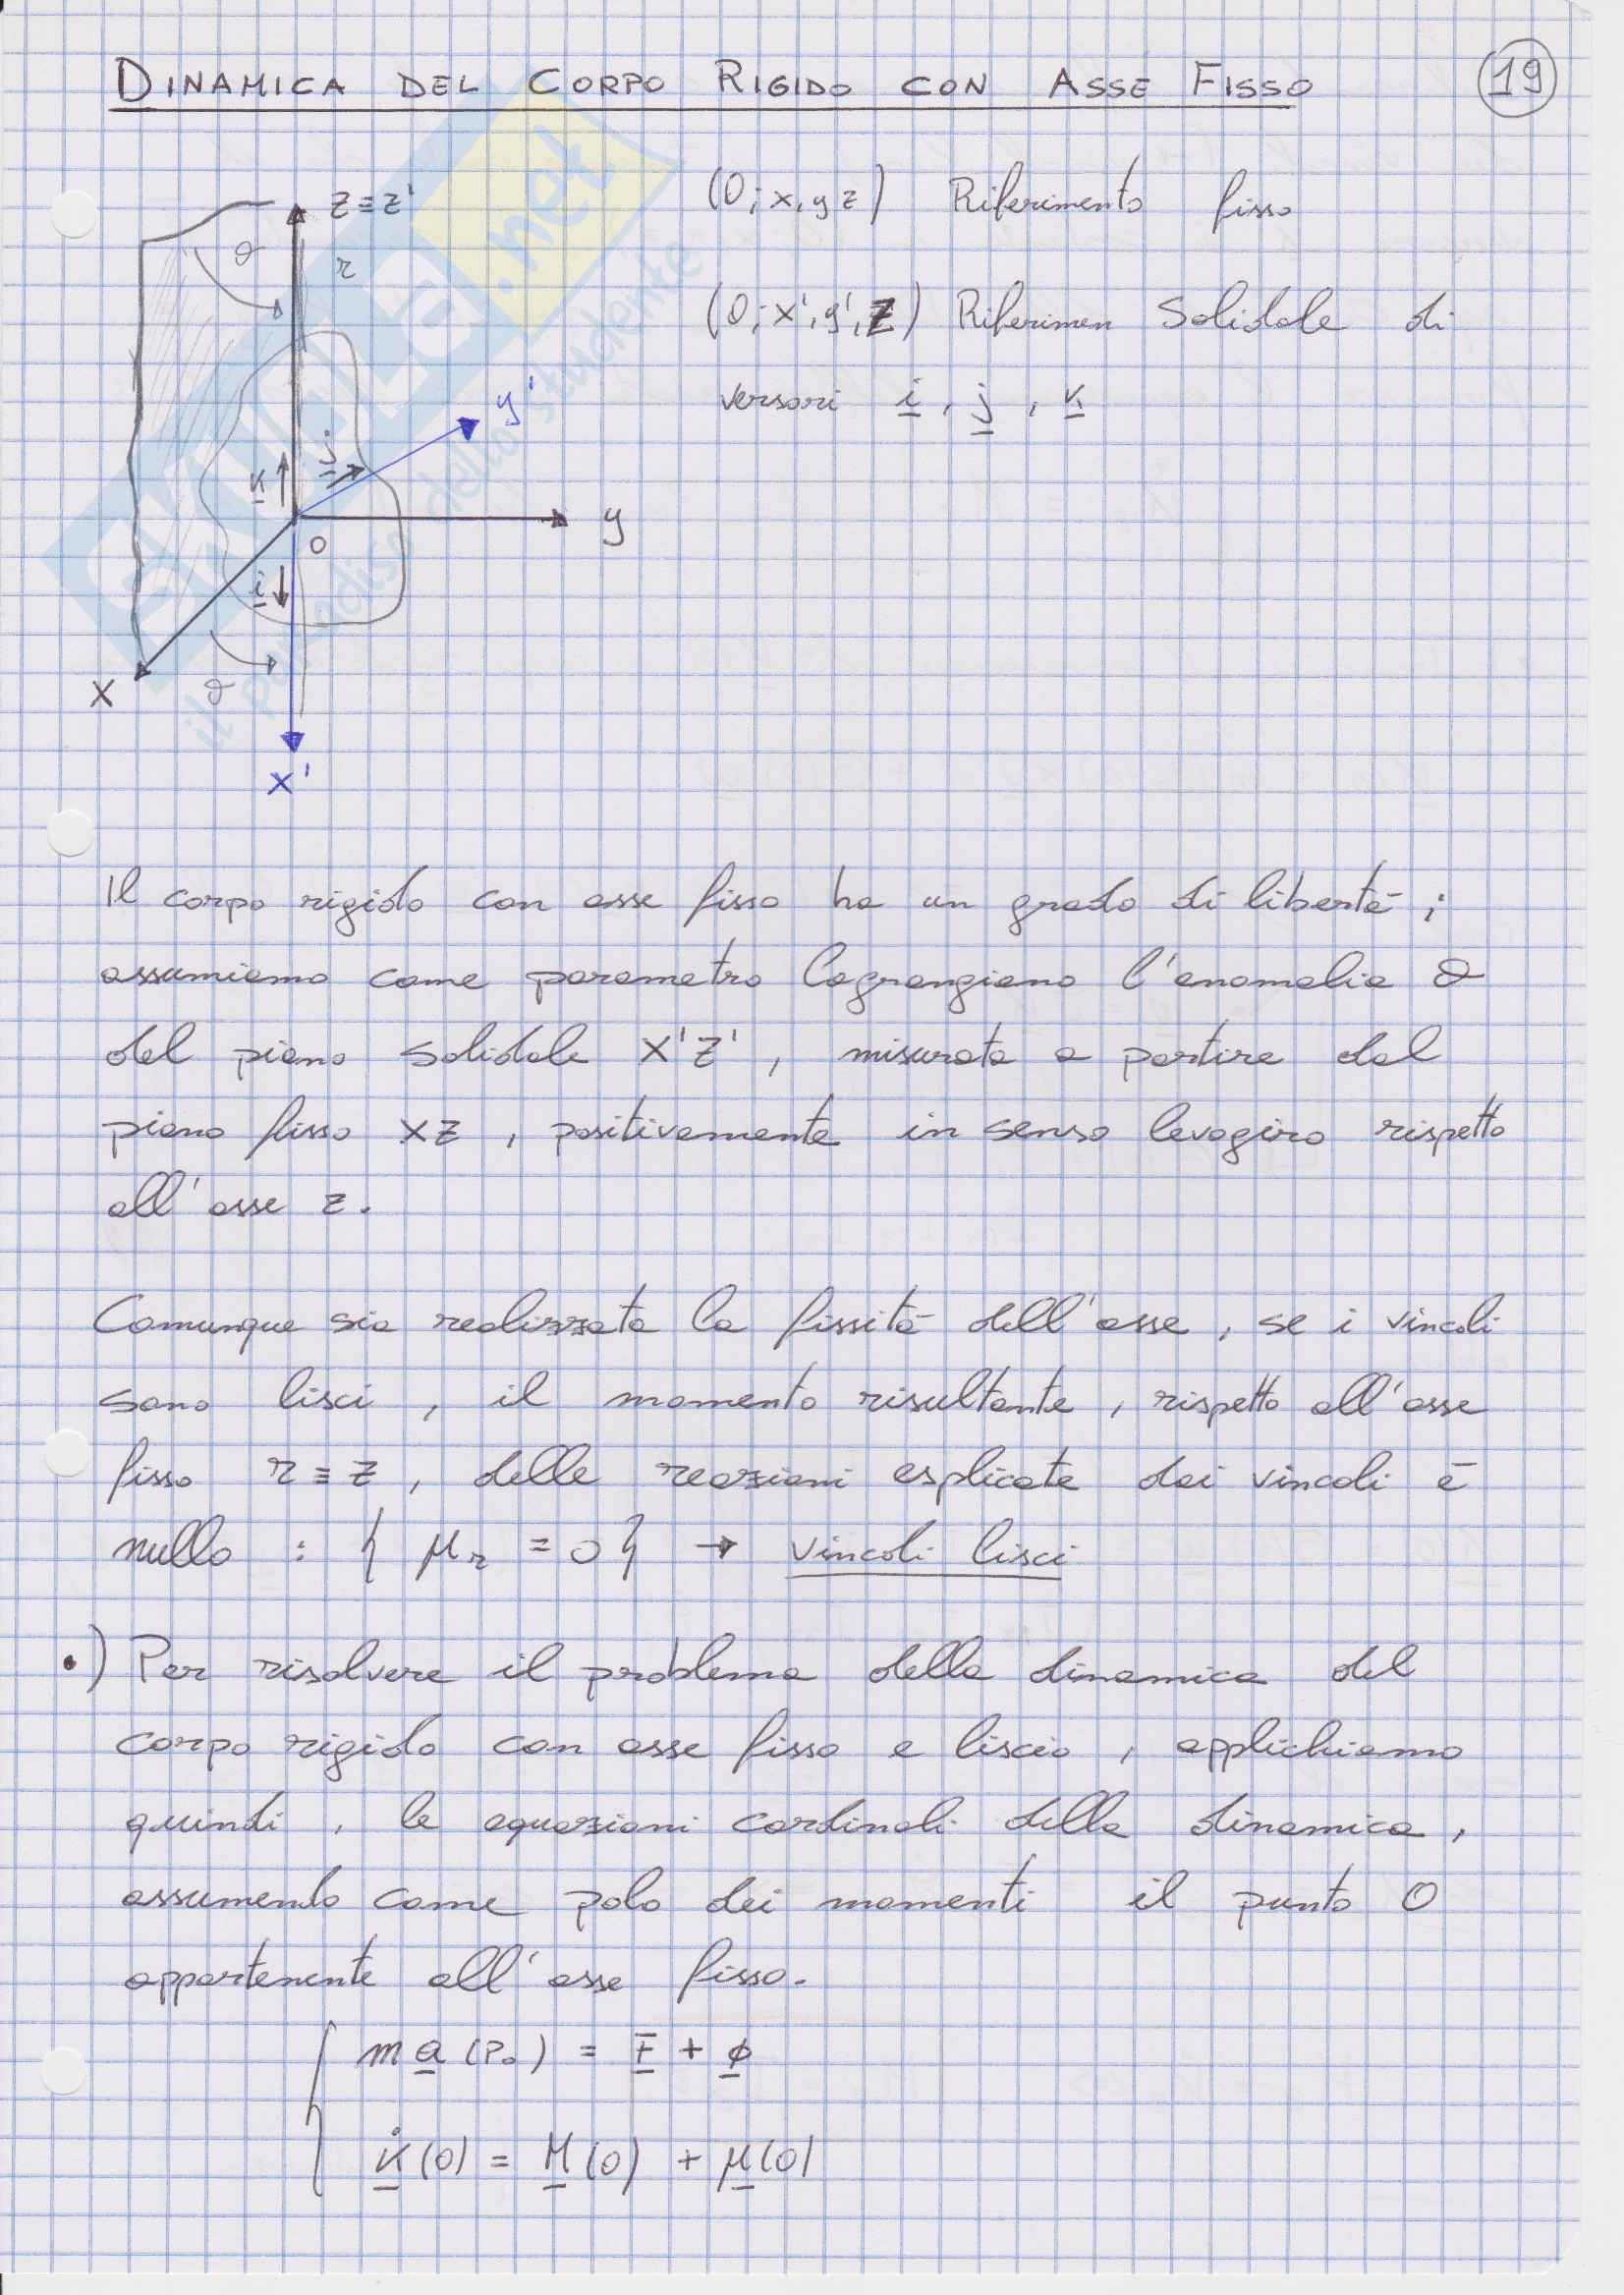 DINAMICA DEL CORPO RIGIDO CON ASSE FISSO
19
z≡z'
ϑ
r
(O; x, y z) Riferimento fisso
(O; x', y', z) Riferimen Solidale di
versori i, j, k
y'
j
k
y
O
i
x
ϑ
x'
Il corpo rigido con asse fisso ha un grado di libertà;
assumiamo come parametro lagrangiano l'anomalia ϑ
del piano solidale x'z', misurata a partire dal
piano fisso xz, positivamente in senso levogiro rispetto
all'asse z.
Comunque sia realizzata la fissità dell'asse, se i vincoli
sono lisci, il momento risultante, rispetto all'asse
fisso r≡z, delle reazioni esplicate dai vincoli è
nullo : { μr = 0 } → vincoli lisci
•) Per risolvere il problema della dinamica del
corpo rigido con asse fisso e liscio, applichiamo
quindi, le equazioni cardinali della dinamica,
assumendo come polo dei momenti il punto O
appartenente all'asse fisso.
m a (P₀) = F + ϕ
K̇(O) = M(O) + μ(O)
.net
il paradiso dello studente